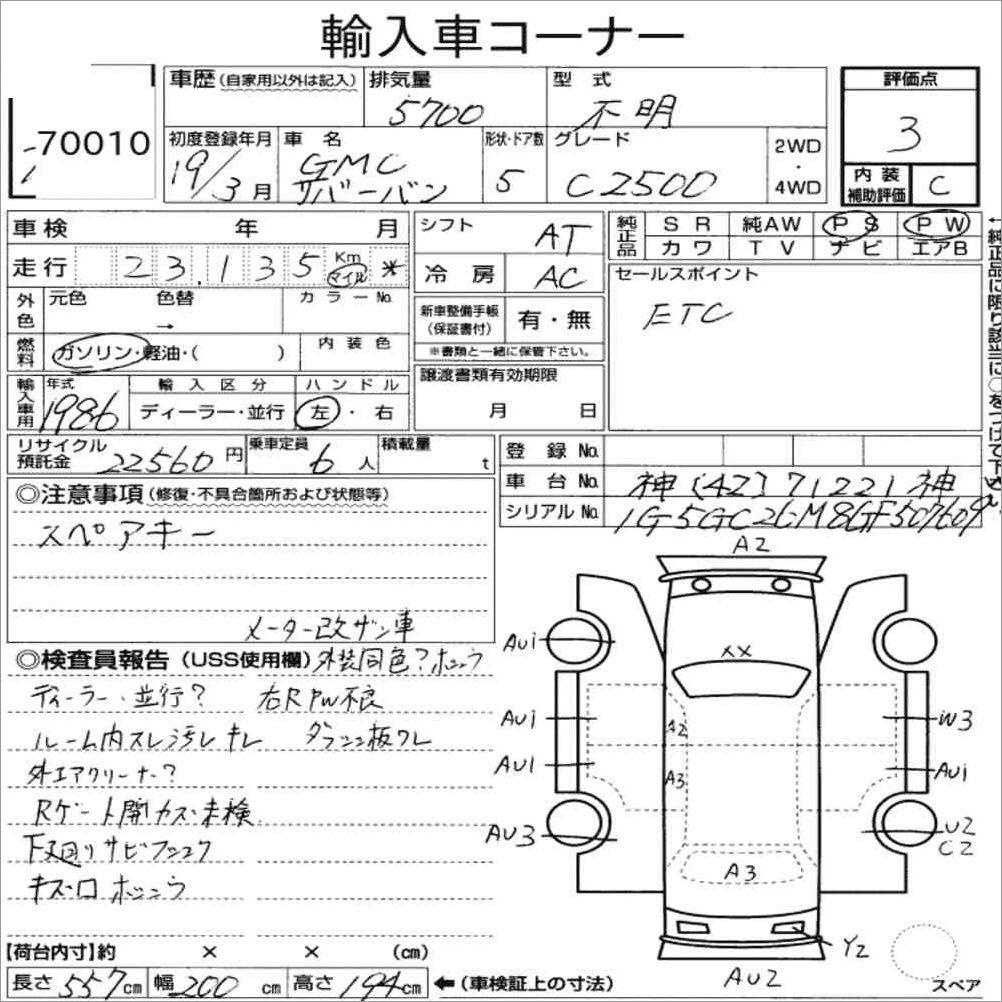 輸入車コーナー
70010
車歴(自家用以外は記入) 排気量 5700 型式 不明 評価点 3
初度登録年月 19/3月 車名 GMC サバーバン 形状・ドア数 5 グレード C2500 2WD・4WD 内装補助評価 C
車検 年 月
走行 23,135 Km マイル *
外色 元色 色替 → カラーNo.
燃料 ガソリン・軽油・( ) 内装色
輸入車用 年式 1986 輸入区分 ディーラー・並行 ハンドル 左・右
リサイクル預託金 22560円 乗車定員 6人 積載量 t
シフト AT
冷房 AC
新車整備手帳(保証書付) 有・無
※書類と一緒に保管下さい。
譲渡書類有効期限
月 日
純正品 SR 純AW PS PW
カワ TV ナビ エアB
セールスポイント
ETC
登録No.
車台No. 神(42)71221神
シリアルNo. 1G5GC26M8GF507609
◎注意事項(修復・不具合箇所および状態等)
スペアキー
メーター改ザン車
◎検査員報告(USS使用欄) 外装同色?
ディーラー・並行? 右R PW不良
ルーム内スレ汚レキレ ダッシュ板ワレ
外エアクリーナー?
Rゲート開カズ未検
下廻りサビ
【荷台内寸】約 × × (cm)
長さ 557cm 幅 200cm 高さ 194cm ←(車検証上の寸法)
A2
AU1
XX
AU1
A2
W3
AU1
A3
AU1
AU3
U2
C2
A3
Y2
AU2
スペア